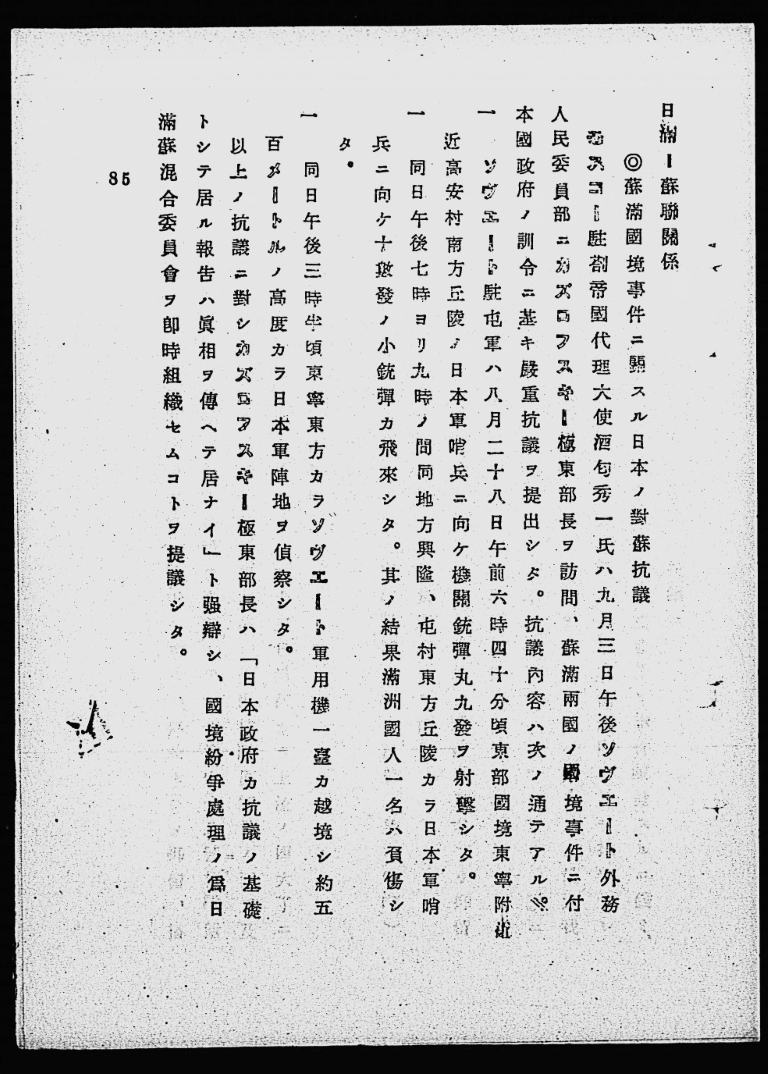 日滿ー蘇聯關係
◎蘇滿國境事件ニ關スル日本ノ對蘇抗議
モスコー駐剳帝國代理大使酒匂秀一氏ハ九月三日午後ソヴエート外務
人民委員部ニカズロフスキー極東部長ヲ訪問、蘇滿兩國ノ國境事件ニ付
本國政府ノ訓令ニ基キ嚴重抗議ヲ提出シタ。抗議內容ハ次ノ通テアル。
一 ソヴエート駐屯軍ハ八月二十八日午前六時四十分頃東部國境東寧附近
近高安村南方丘陵ノ日本軍哨兵ニ向ケ機關銃彈丸九發ヲ射擊シタ。
一 同日午後七時ヨリ九時ノ間同地方興隆、屯村東方丘陵カラ日本軍哨
兵ニ向ケ十數發ノ小銃彈カ飛來シタ。其ノ結果滿洲國人一名ハ負傷シ
タ。
一 同日午後三時半頃東寧東方カラソヴエート軍用機一臺カ越境シ約五
百メートルノ高度カラ日本軍陣地ヲ偵察シタ。
以上ノ抗議ニ對シカズロフスキー極東部長ハ「日本政府カ抗議ノ基礎
トシテ居ル報告ハ眞相ヲ傳ヘテ居ナイ」ト强辯シ、國境紛爭處理ノ爲日
滿蘇混合委員會ヲ卽時組織セムコトヲ提議シタ。
85